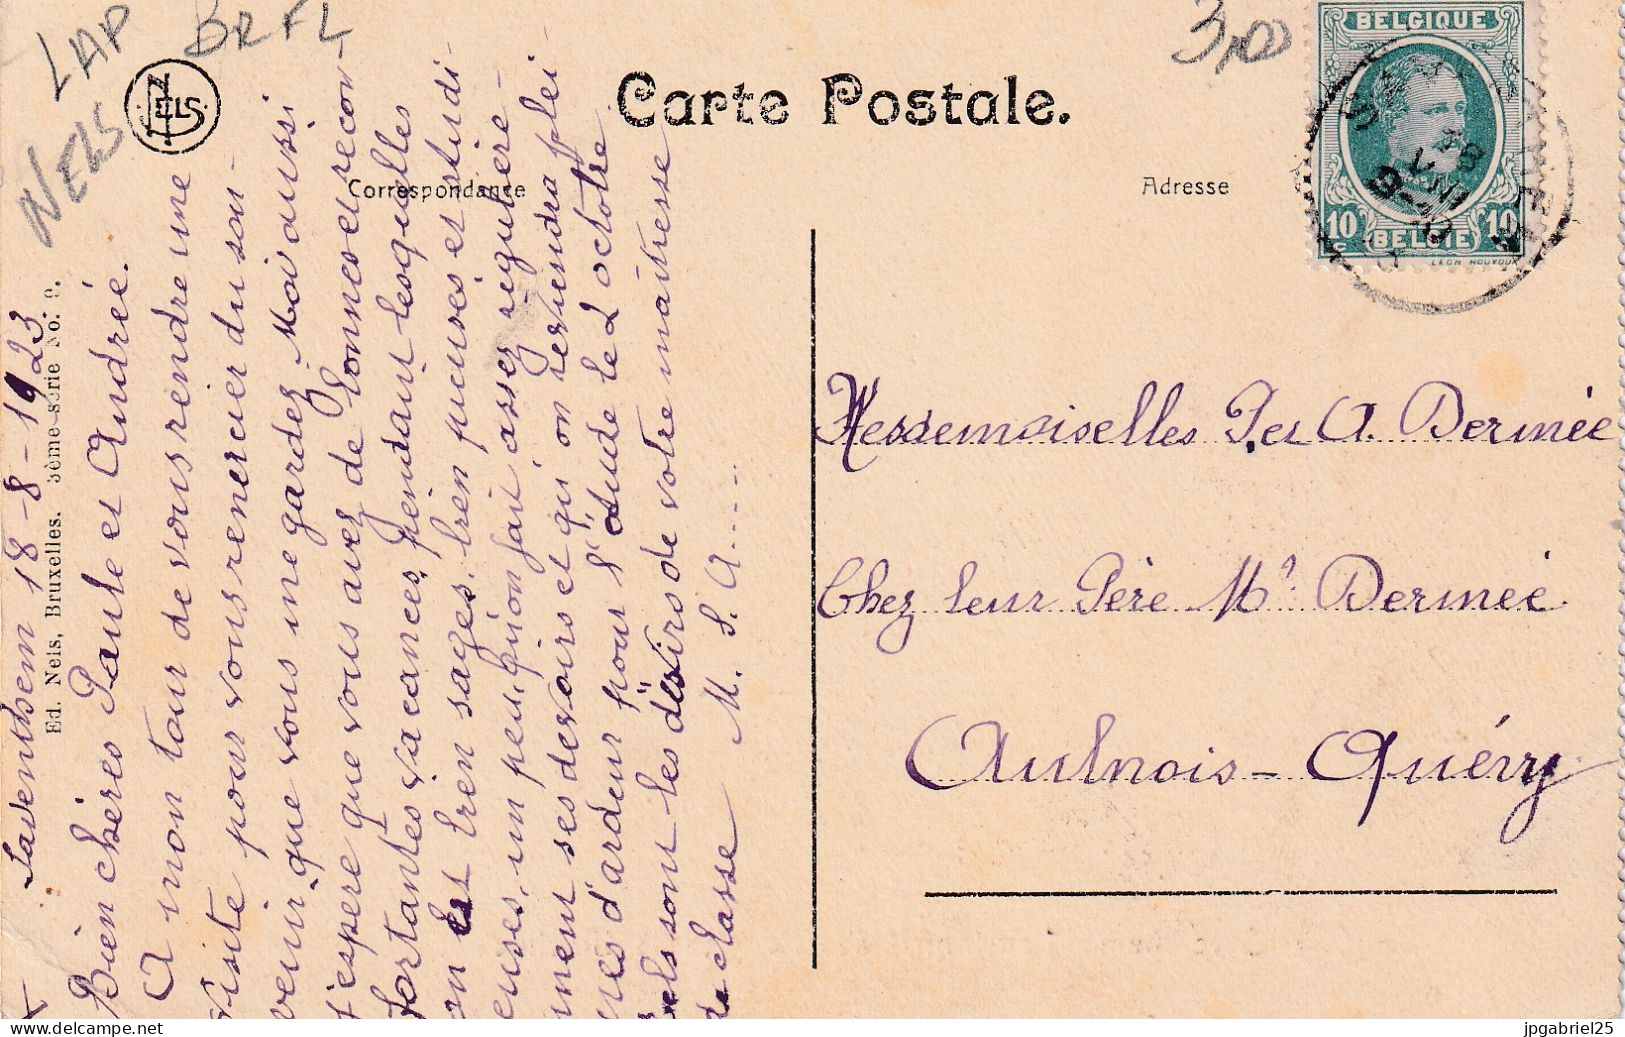 LAP BRFL
NELS
3,00
NELS
Carte Postale.
Correspondance
Adresse
BELGIQUE
10 c 10 c
BELGIË
LÉON HOUYOUX
18 VIII
Ed. Nels, Bruxelles. 3ème série No. 9.
Saventhem 18-8-1923
Bien chères Paule et Andrée.
A mon tour de vous rendre une
visite pour vous remercier du sou-
venir que vous me gardez. Moi aussi
j'espère que vous avez de bonnes et récon-
fortantes vacances, pendant lesquelles
on est bien sages, bien pieuses et studi-
euses, un peu, qu'on fait assez régulière-
ment ses devoirs et qu'on reviendra plei-
nes d'ardeur pour l'étude le 2 octobre
tels sont les désirs de votre maîtresse
de classe M. S. A.....
Mesdemoiselles P. et A. Dermée
Chez leur Père Mr Dermée
Aulnois-Quévy
jpgabriel25